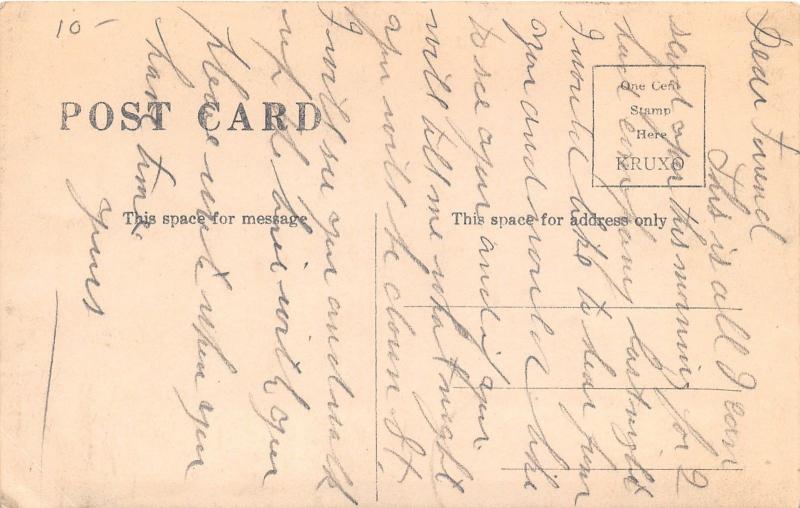 10-
POST CARD
One Cent
Stamp
Here
KRUXO
This space for message
This space for address only
Dear Friend
This is all I can
send you this morning for I
had company last night
I would like to hear from
you and would like
to see you and if you
will tell me what night
you will be down St.
I will see you and walk
up the with you
Please write when you
have time.
yours